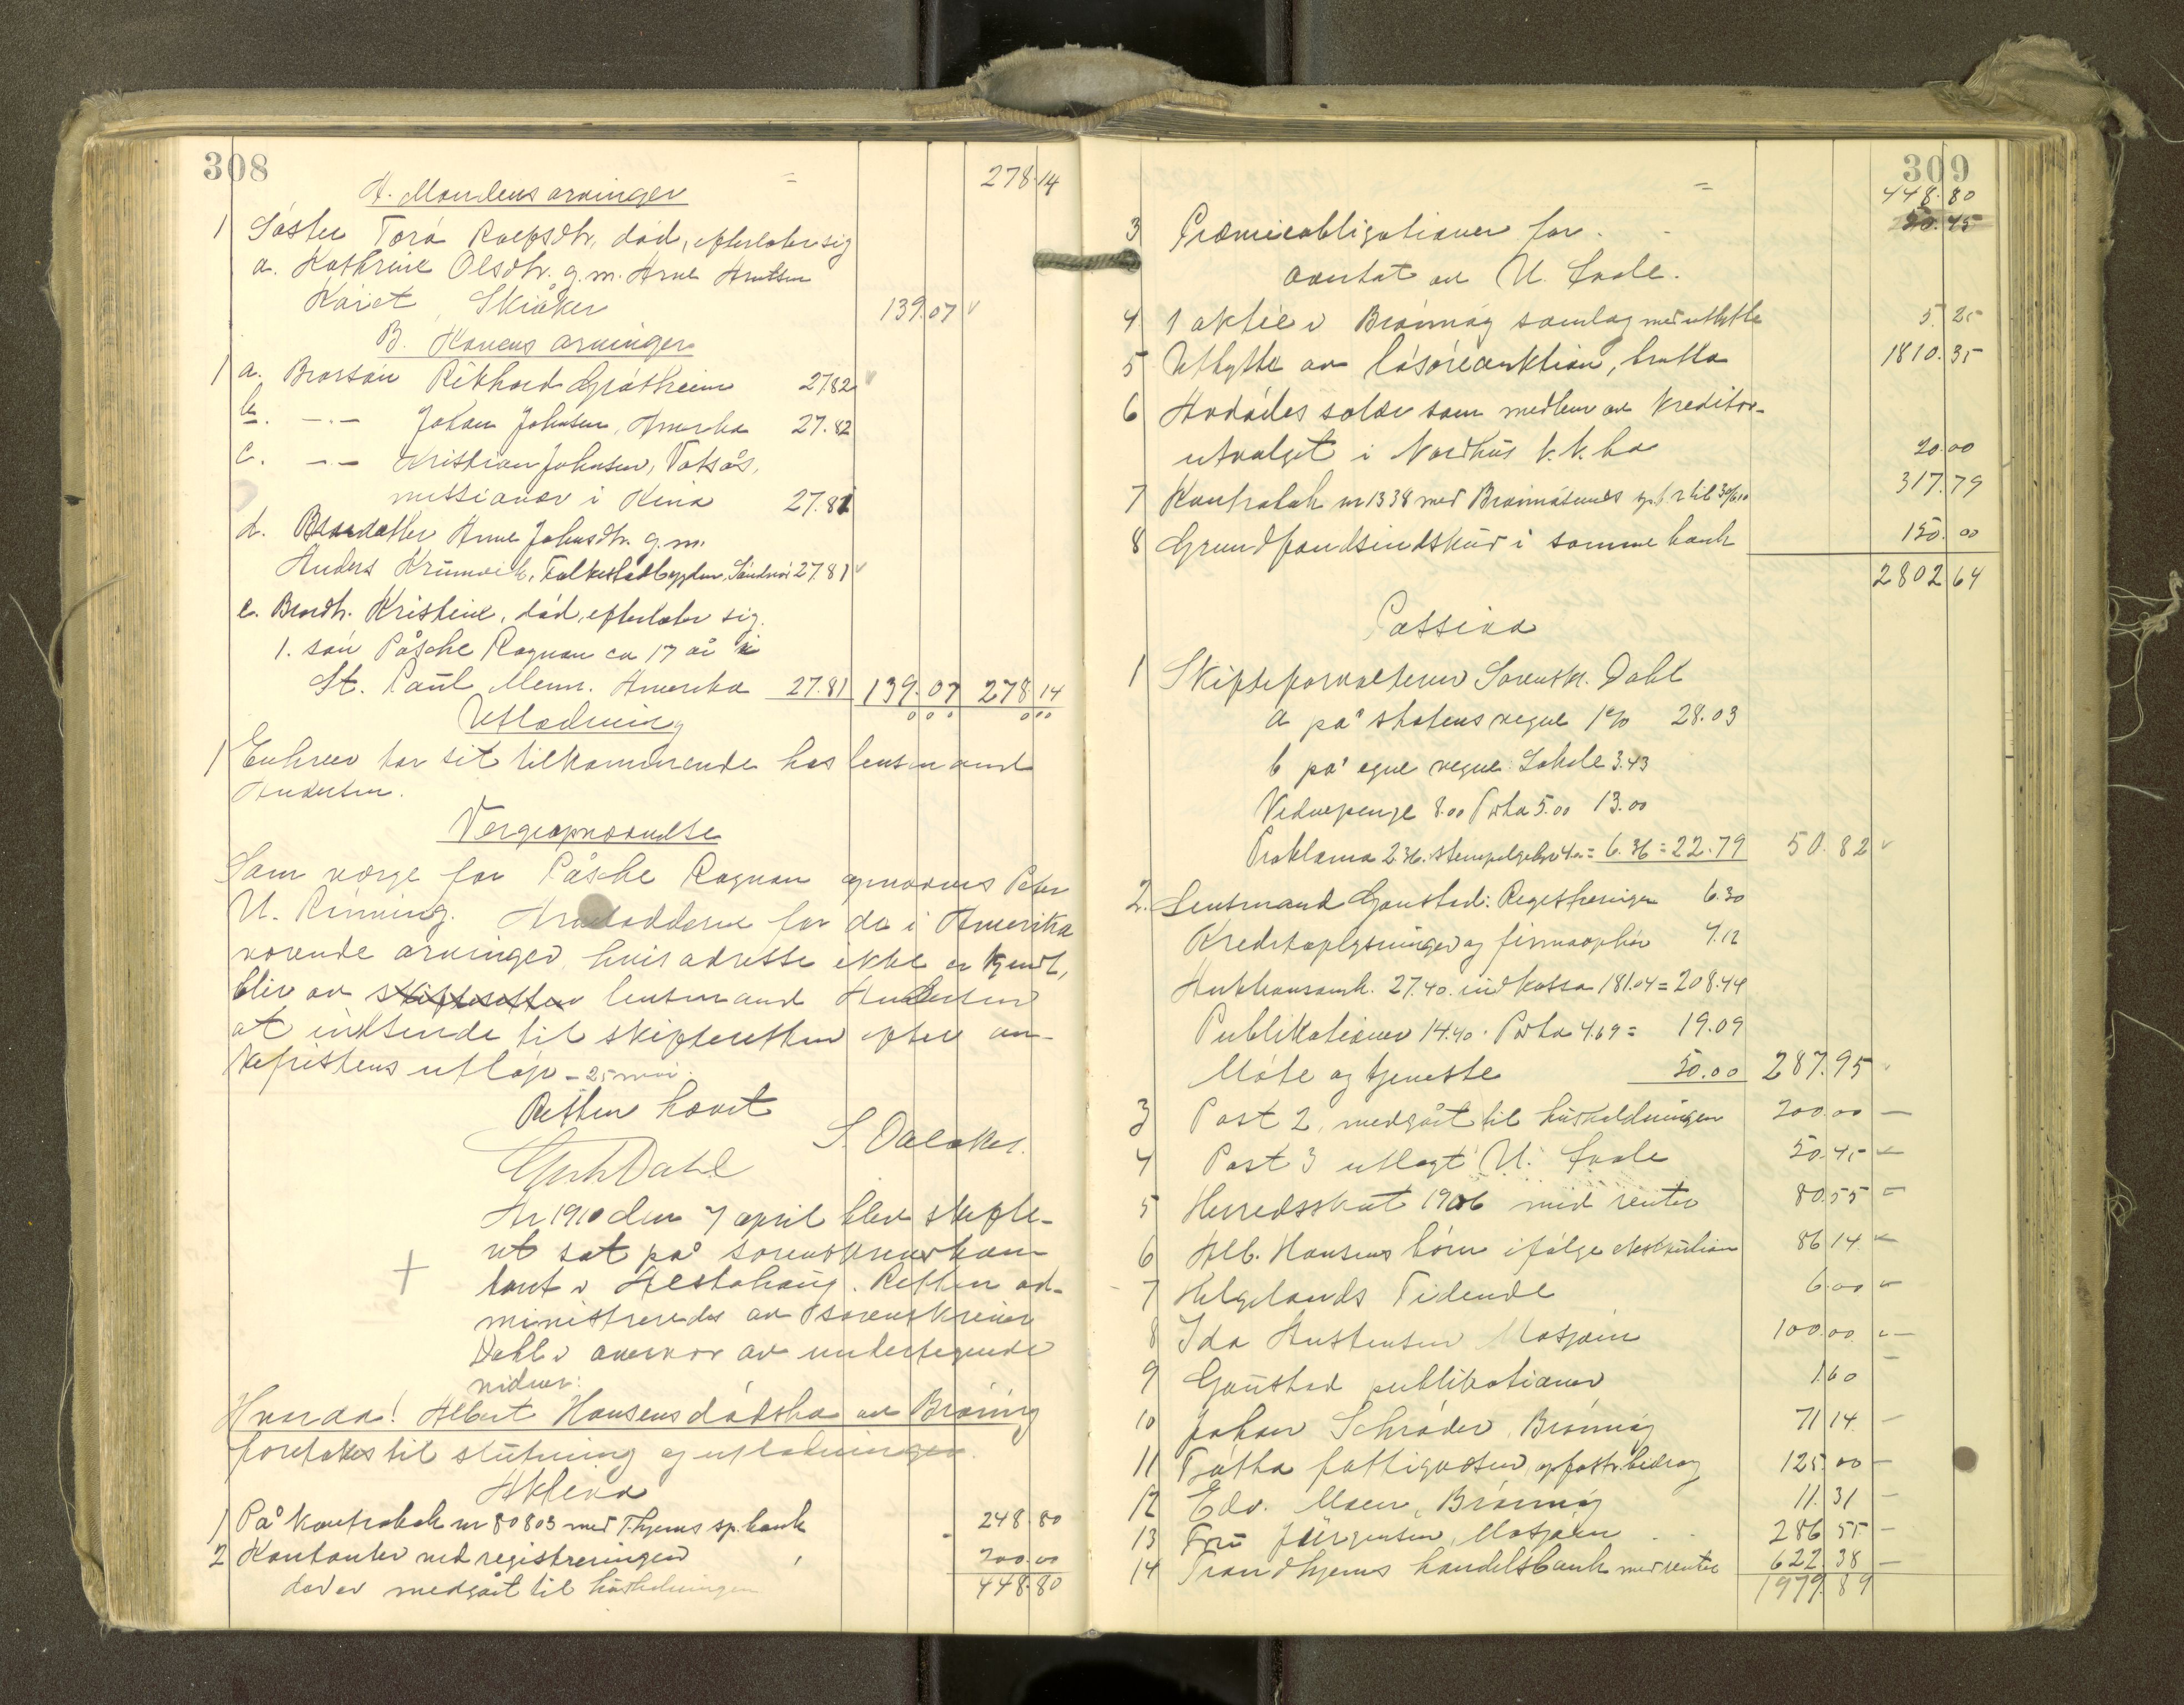 308
= 278 14
A. Mandens arvinger
1 Søster Tora Rolfsdtr, død, efterlater sig
a. Kathrine Olsdtr. g.m. Arne Knutsen
Skiåker 139.07
B. Konens arvinger
1 a. Brorsøn Rikhard Gråtheim 27.82
b. -.- Johan Johnsen, Amerika 27.82
c. -.- Kristian Johnsen, Vatsås,
missionær i Kina 27.81
d. Brordatter Anne Johnsdtr. g.m.
Anders Krumvik, Folkestadbygden, Søndmør 27.81
e. Brordtr. Kristine, død, efterlater sig.
1. søn Påsche Rognan ca 17 år i
St. Paul Menn. Amerika 27.81 139.07 278.14
Utlodning
1 Enhver har sit tilkommende hos lensmand
Andersen.
Vergeopnævnelse
Som verge for Påsche Rognan opnævnes Peter
U. Rinning. Arvelodderne for de i Amerika
værende arvinger, hvis adresse ikke er kjendt,
blir av skifteretten lensmand Andersen
at indsende til skifteretten efter an-
kefristens utløp - 25 mai.
Retten hævet
S. Dalaker.
Dahl
År 1910 den 7 april blev skifte-
ret sat på sorenskriverkon-
toret i Alstahaug. Retten ad-
ministreredes av sorenskriver
Dahl i overvær av undertegnede
vidner:
Hvorda! Albert Hansens dødsbo av Brønnø
foretokes til slutning og utlodningen.
Aktiva
1 På kontrabok nr 80803 med T.hjems sp.bank 248.80
2 Kontanter ved registreringen 200.00
derav medgåt til husholdningen 448.80
309
= 448.80
3 Præmieobligationer for 50.45
overtat av U.
4 1 aktie i Brønnøy samlag med utbytte 5.25
5 Utbytte av løsøreauktion, brutto 1810.35
6 Avdødes salær som medlem av kreditor-
utvalget i Nordhus k.k.bo 20.00
7 Kontrabok nr 1338 med Brønnøsunds sp.b. r til 30/6 10 317.79
8 Grundfondsindskud i samme bank 150.00
2802 64
Passiva
1 Skifteforvalteren Sorenskr. Dahl
a på statens vegne 1% 28.03
b på egne vegne: Lokale 3.43
Vidnepenge 8.00 Porto 5.00 13.00
Proklama 2.36. stempelgebyr 4.00 = 6.36 = 22.79 50.82
2. Lensmand Gaustad: Registreringen 6.30
Kreditoplysninger og firmaophør 4.12
Auktionsomk. 27.40. indkassa 181.04 = 208.44
Publikationer 14.40. Porto 4.69 = 19.09
Møte og tjeneste 50.00 287.95
3 Post 2, medgåt til husholdningen 200.00 -
4 Post 3 utlagt U. 50.45
5 Herredsskat 1906 med renter 80.55
6 Alb. Hansens børn ifølge eksekution 86 14
7 Helgelands Tidende 6.00
8 Ida Austensen Mosjøen 100.00
9 Gaustad publikationer 1.60
10 Johan Schrøder, Brønnøy 71 14 -
11 Tjøtta fattigvæsen, opfostr.bidrag 125.00 -
12 Edv. Moen, Brønnøy 11.31 -
13 Fru Jürgensen, Mosjøen 286 55 -
14 Trondhjems handelsbank med renter 622.38 -
1979.89